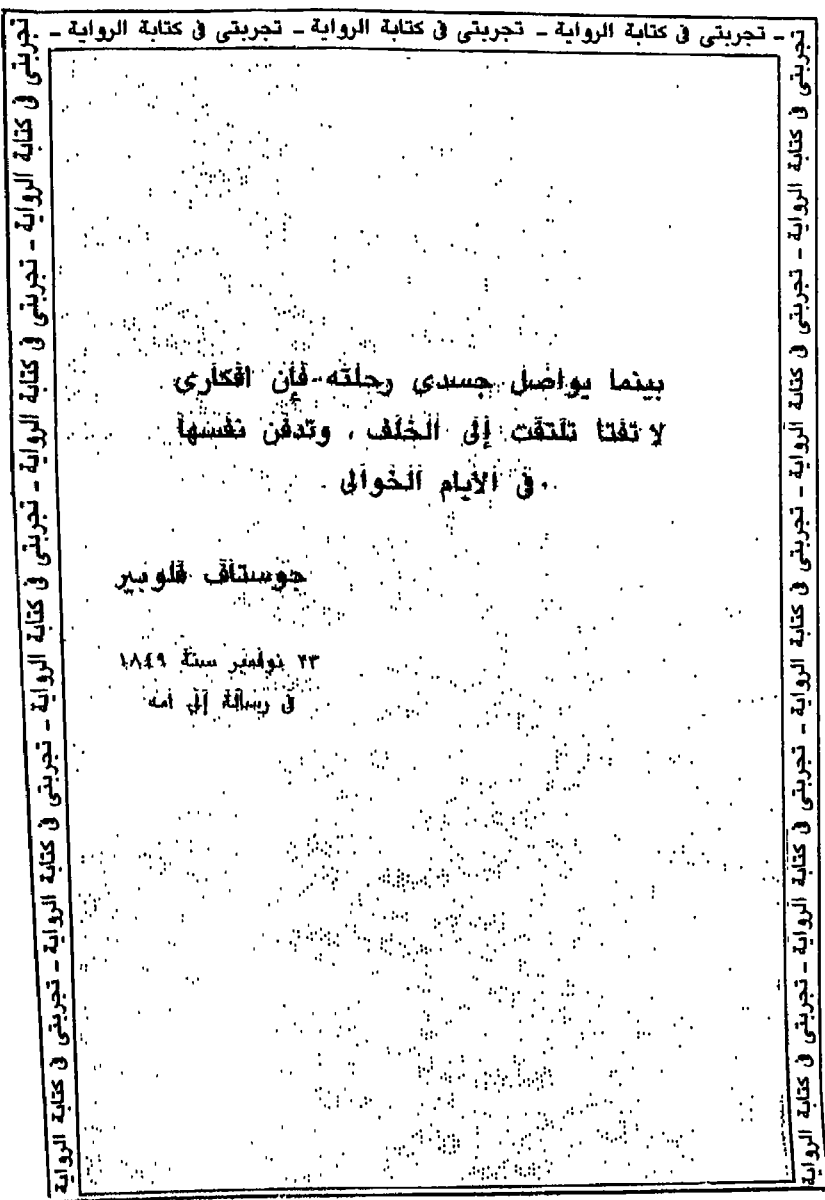 ـ تجربتى فى كتابة الرواية ـ تجربتى فى كتابة الرواية ـ تجربتى فى كتابة الرواية ـ
تجربتى فى كتابة الرواية ـ تجربتى فى كتابة الرواية ـ تجربتى فى كتابة الرواية ـ تجربتى فى كتابة الرواية ـ تجربتى فى كتابة الرواية
بينما يواصل جسدى رحلته فإن افكارى
لا تفتا تلتفت إلى الخلف ، وتدفن نفسها
فى الأيام الخوالى .
جوستاف فلوبير
٢٣ نوفمبر سنة ١٨٤٩
فى رسالة إلى أمه
تجربتى فى كتابة الرواية ـ تجربتى فى كتابة الرواية ـ تجربتى فى كتابة الرواية ـ تجربتى فى كتابة الرواية ـ تجربتى فى كتابة الرواية